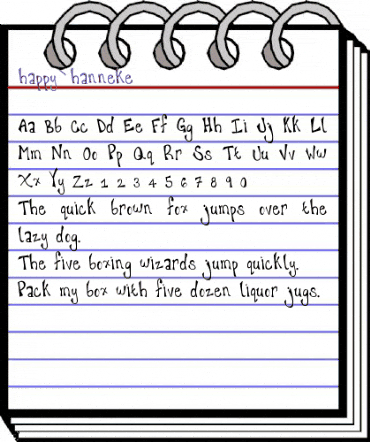 happy hanneke
Aa Bb Cc Dd Ee Ff Gg Hh Ii Jj Kk Ll
Mm Nn Oo Pp Qq Rr Ss Tt Uu Vv Ww
Xx Yy Zz 1 2 3 4 5 6 7 8 9 0
The quick brown fox jumps over the
lazy dog.
The five boxing wizards jump quickly.
Pack my box with five dozen liquor jugs.